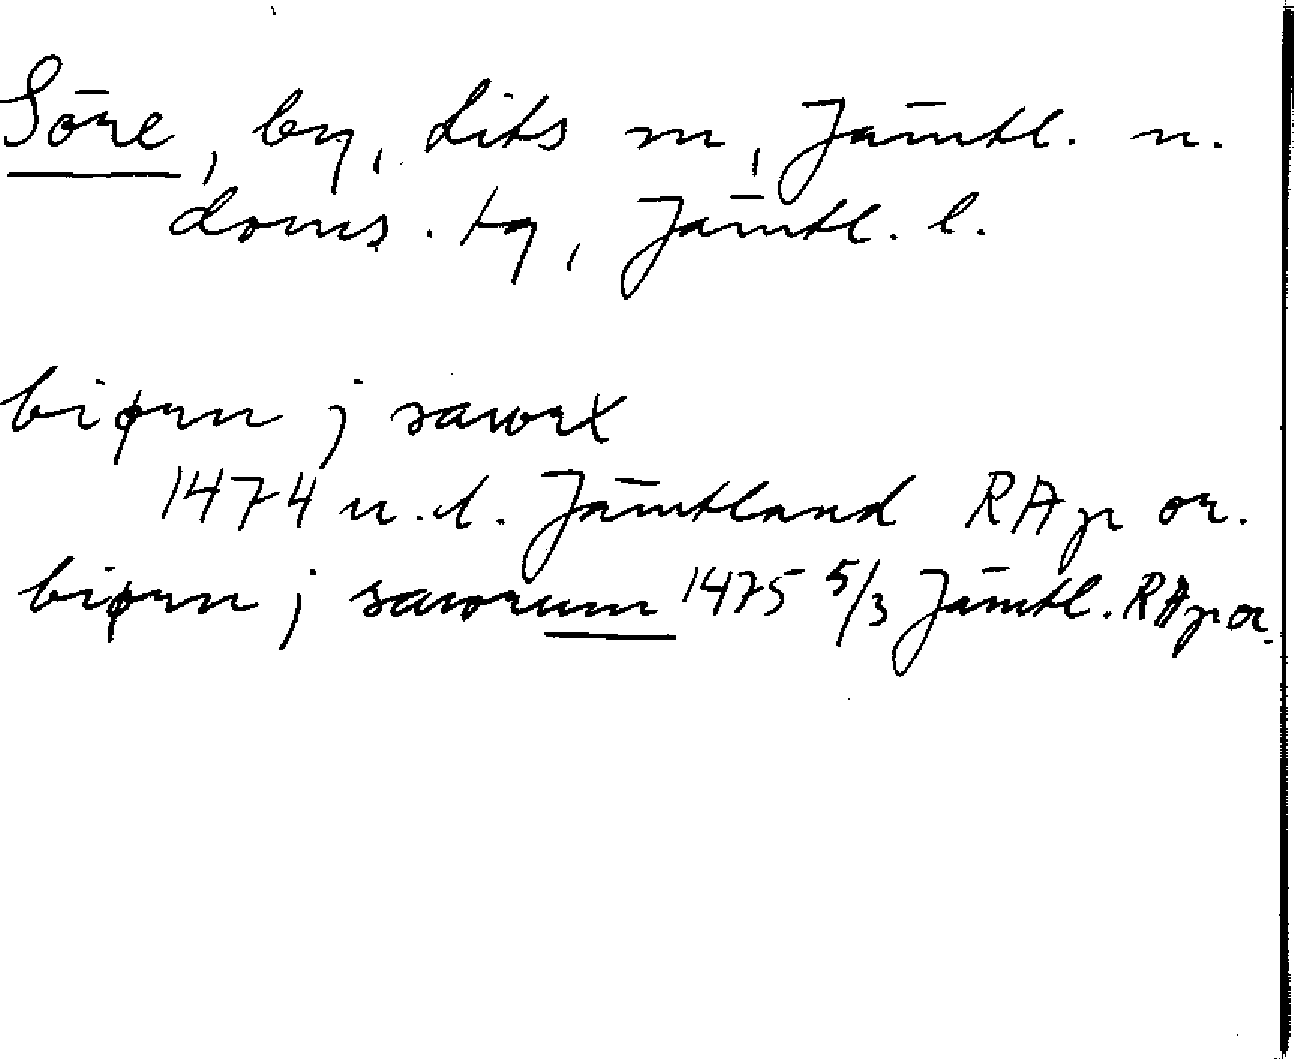 Söre, by, Lits sn, Jämtl. n.
doms. tg, Jämtl. l.
biørn j saworx
1474 u.d. Jämtland RAp or.
biørn j saworum 1475 5/3 Jämtl. RAp or.